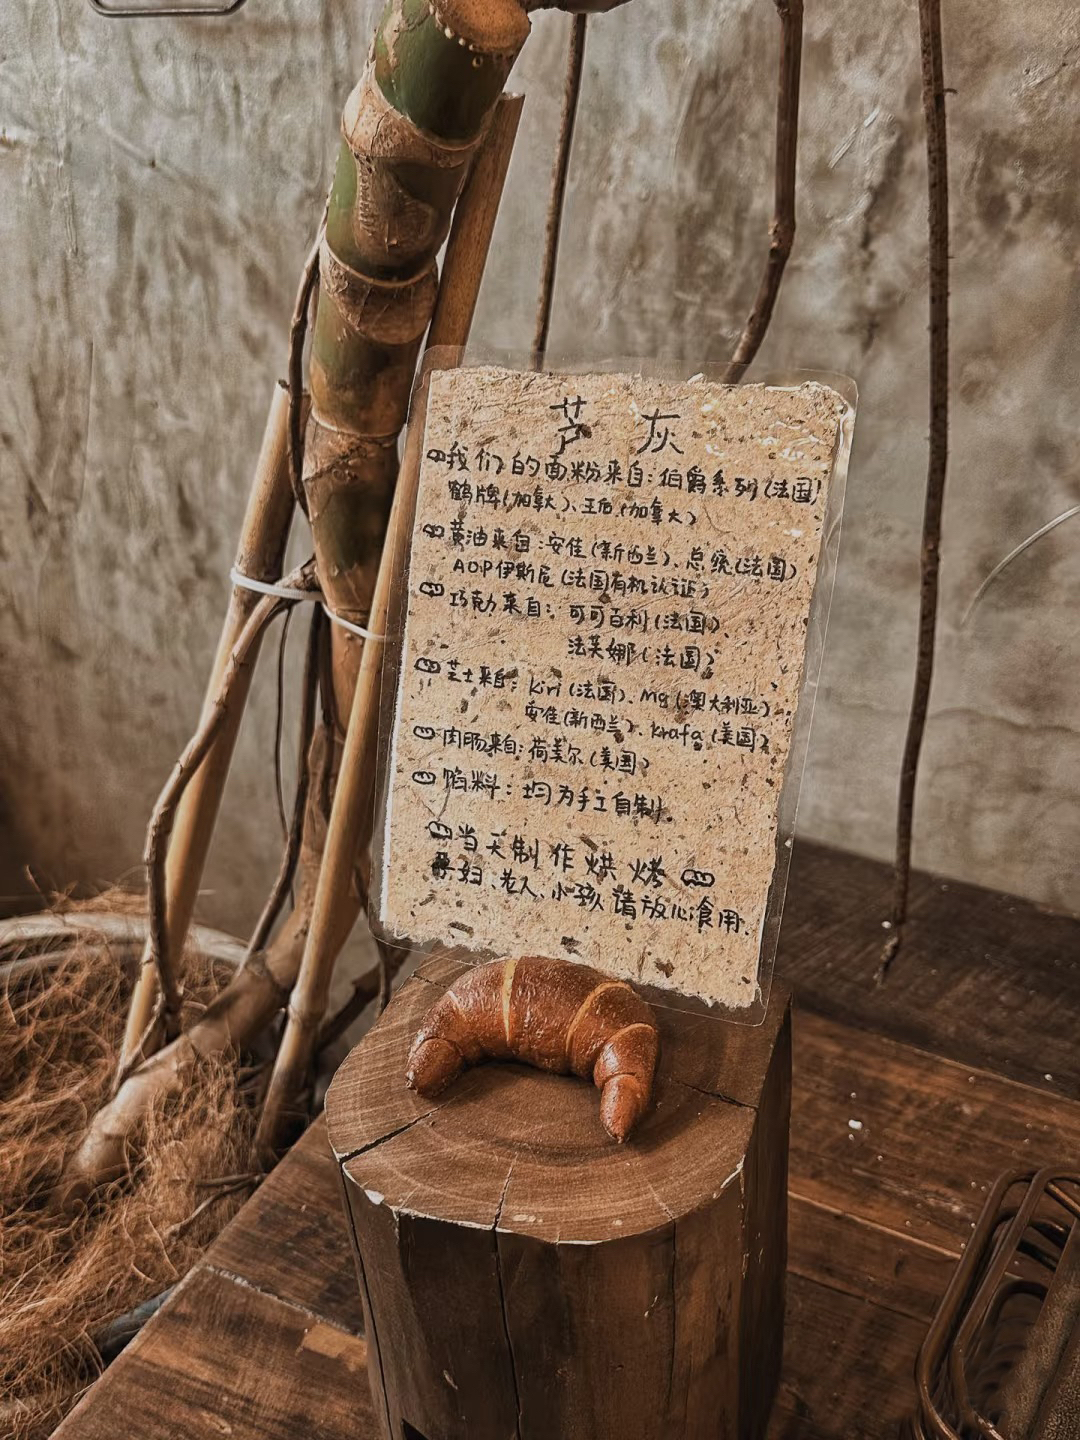 芦灰
我们的面粉来自：伯爵系列(法国)
鹤牌(加拿大)、王后(加拿大)
黄油来自：安佳(新西兰)、总统(法国)
AOP伊斯尼(法国有机认证)
巧克力来自：可可百利(法国)、
法芙娜(法国)
芝士来自：kiri(法国)、Mg(澳大利亚)
安佳(新西兰)、krafa(美国)
肉肠来自：荷美尔(美国)
馅料：均为手工自制。
当天制作烘烤
孕妇、老人、小孩请放心食用.